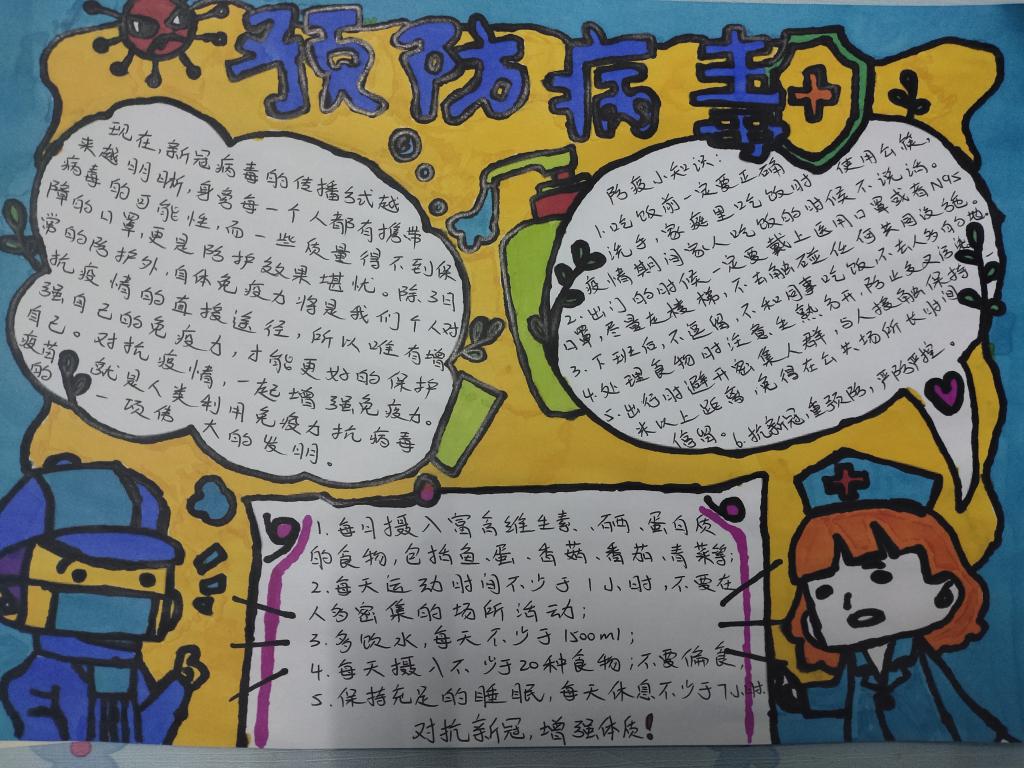 预防病毒
现在,新冠病毒的传播方式越
来越明晰,身旁每一个人都有携带
病毒的可能性,而一些质量得不到保
障的口罩,更是防护效果堪忧。除了日
常的防护外,自体免疫力将是我们个人对
抗疫情的直接途径,所以唯有增
强自己的免疫力,才能更好的保护
自己。对抗疫情,一起增强免疫力。
疫苗,就是人类利用免疫力抗病毒
的一项伟大的发明。
防疫小知识:
1.吃饭前一定要正确
洗手,家庭里吃饭时,使用公筷,
疫情期间家人吃饭的时候不说话。
2.出门的时候一定要戴上医用口罩或者N95
口罩,尽量走楼梯,不去触碰任何共用设施。
3.下班后,不逗留,不和同事吃饭,不去人多的地
4.处理食物时注意生熟分开,防止交叉污染
5.出行时避开密集人群,与人接触保持一
米以上距离,免得在公共场所长时间
停留。6.抗新冠,重预防,严防严控。
1.每日摄入富含维生素、硒、蛋白质
的食物,包括鱼、蛋、香菇、番茄、青菜等;
2.每天运动时间不少于1小时,不要在
人多密集的场所活动;
3.多饮水,每天不少于1500ml;
4.每天摄入不少于20种食物;不要偏食,
5.保持充足的睡眠,每天休息不少于7小时.
对抗新冠,增强体质!